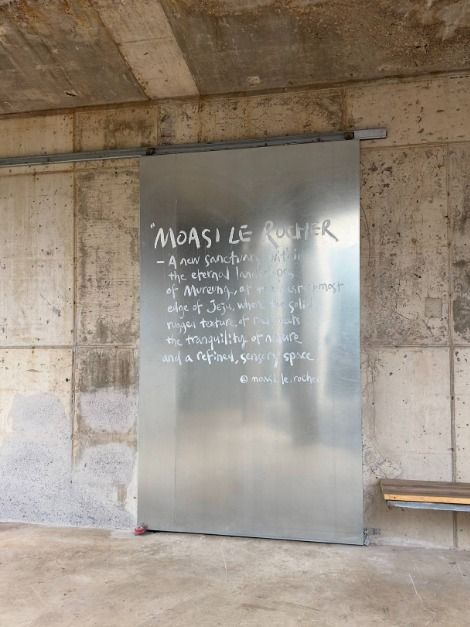 "MOASI LE ROCHER
- A new sanctuary within
the eternal landscapes
of Mureung, at the westernmost
edge of Jeju, where the solid
rugged texture of rock meets
the tranquility of nature
and a refined, sensory space.
@moasi.le.rocher